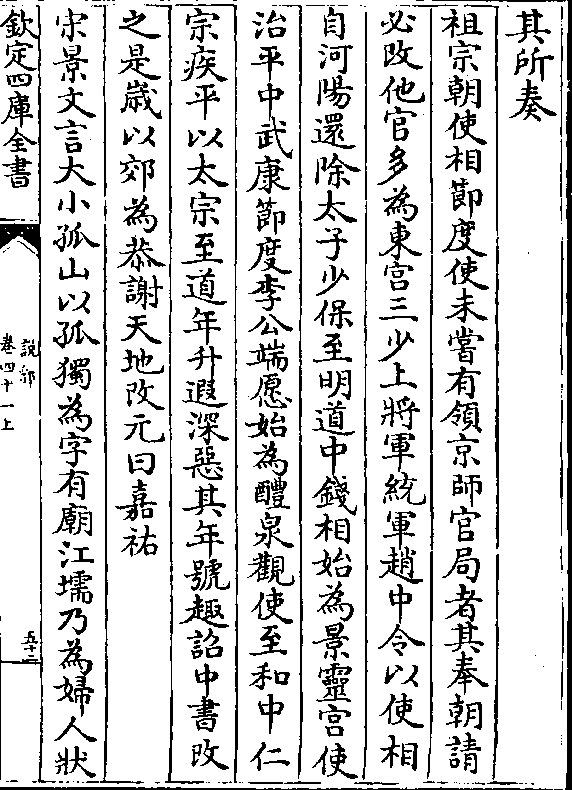 其所奏
祖宗朝使相節度使未嘗有領京師官局者其奉朝請
必改他官多為東宫三少上將軍統軍趙中令以使相
自河陽還除太子少保至明道中錢相始為景靈宫使
治平中武康節度李公端愿始為醴泉觀使至和中仁
宗疾平以太宗至道年升遐深惡其年號趣詔中書改
之是歲以郊為恭謝天地改元曰嘉祐
宋景文言大小孤山以孤獨為字有廟江壖乃為婦人狀
欽定四庫全書
說郛
卷四十一上
五十三